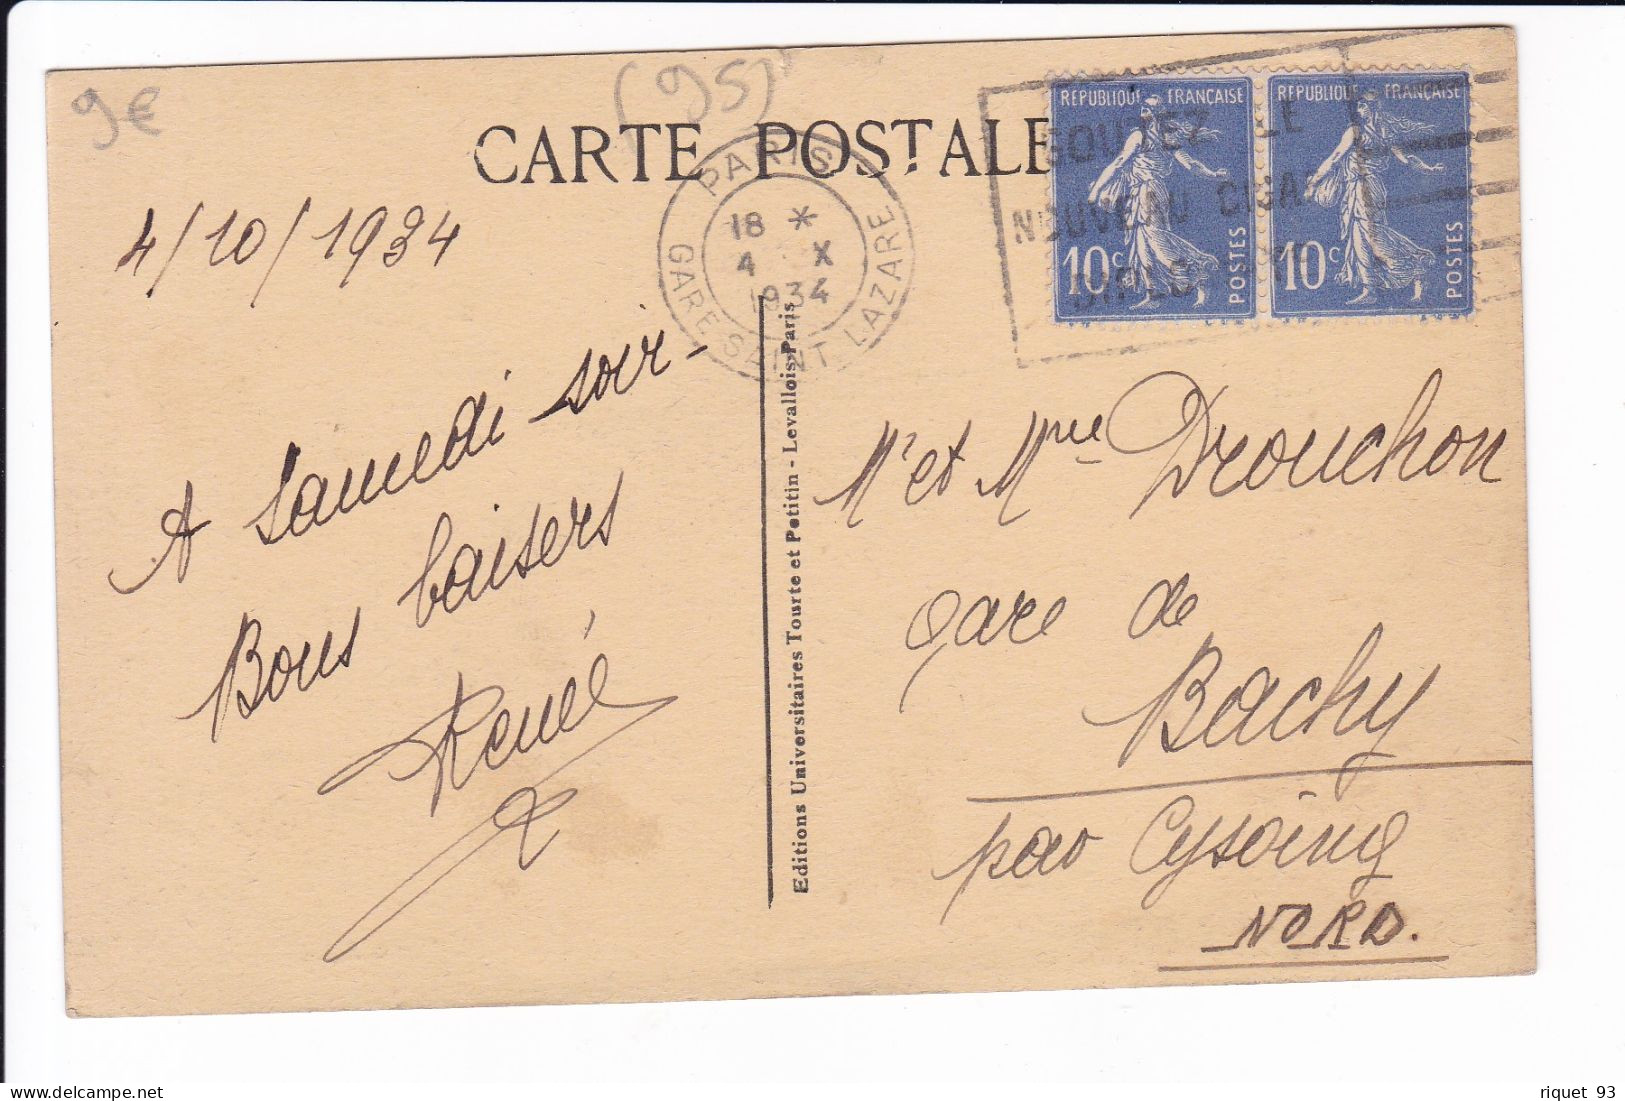 9€
(95)
CARTE POSTALE
4/10/1934
PARIS
18 *
4 X
1934
GARE SAINT LAZARE
GOUTEZ LE
NOUVEAU CIGA
REPUBLIQUE FRANÇAISE
10c POSTES
REPUBLIQUE FRANÇAISE
10c POSTES
A Samedi soir-
Bons baisers
René
Editions Universitaires Tourte et Petitin - Levallois-Paris
Mr et Mme Drouchon
gare de
Bachy
par Cysoing
NORD.
delcampe.net
riquet 93